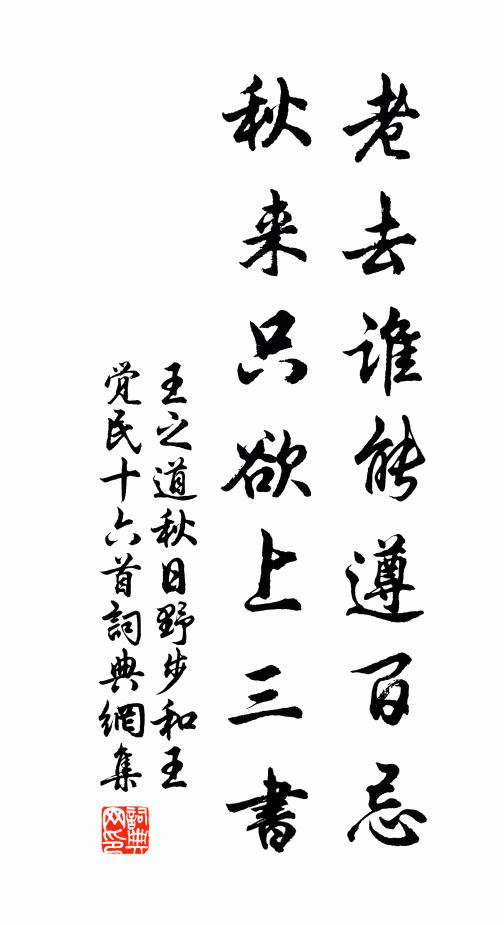 老去谁能遵百忌
秋来只欲上三書
王之道秋日野步和王
觉民十六首詞典網集
詞典
网印